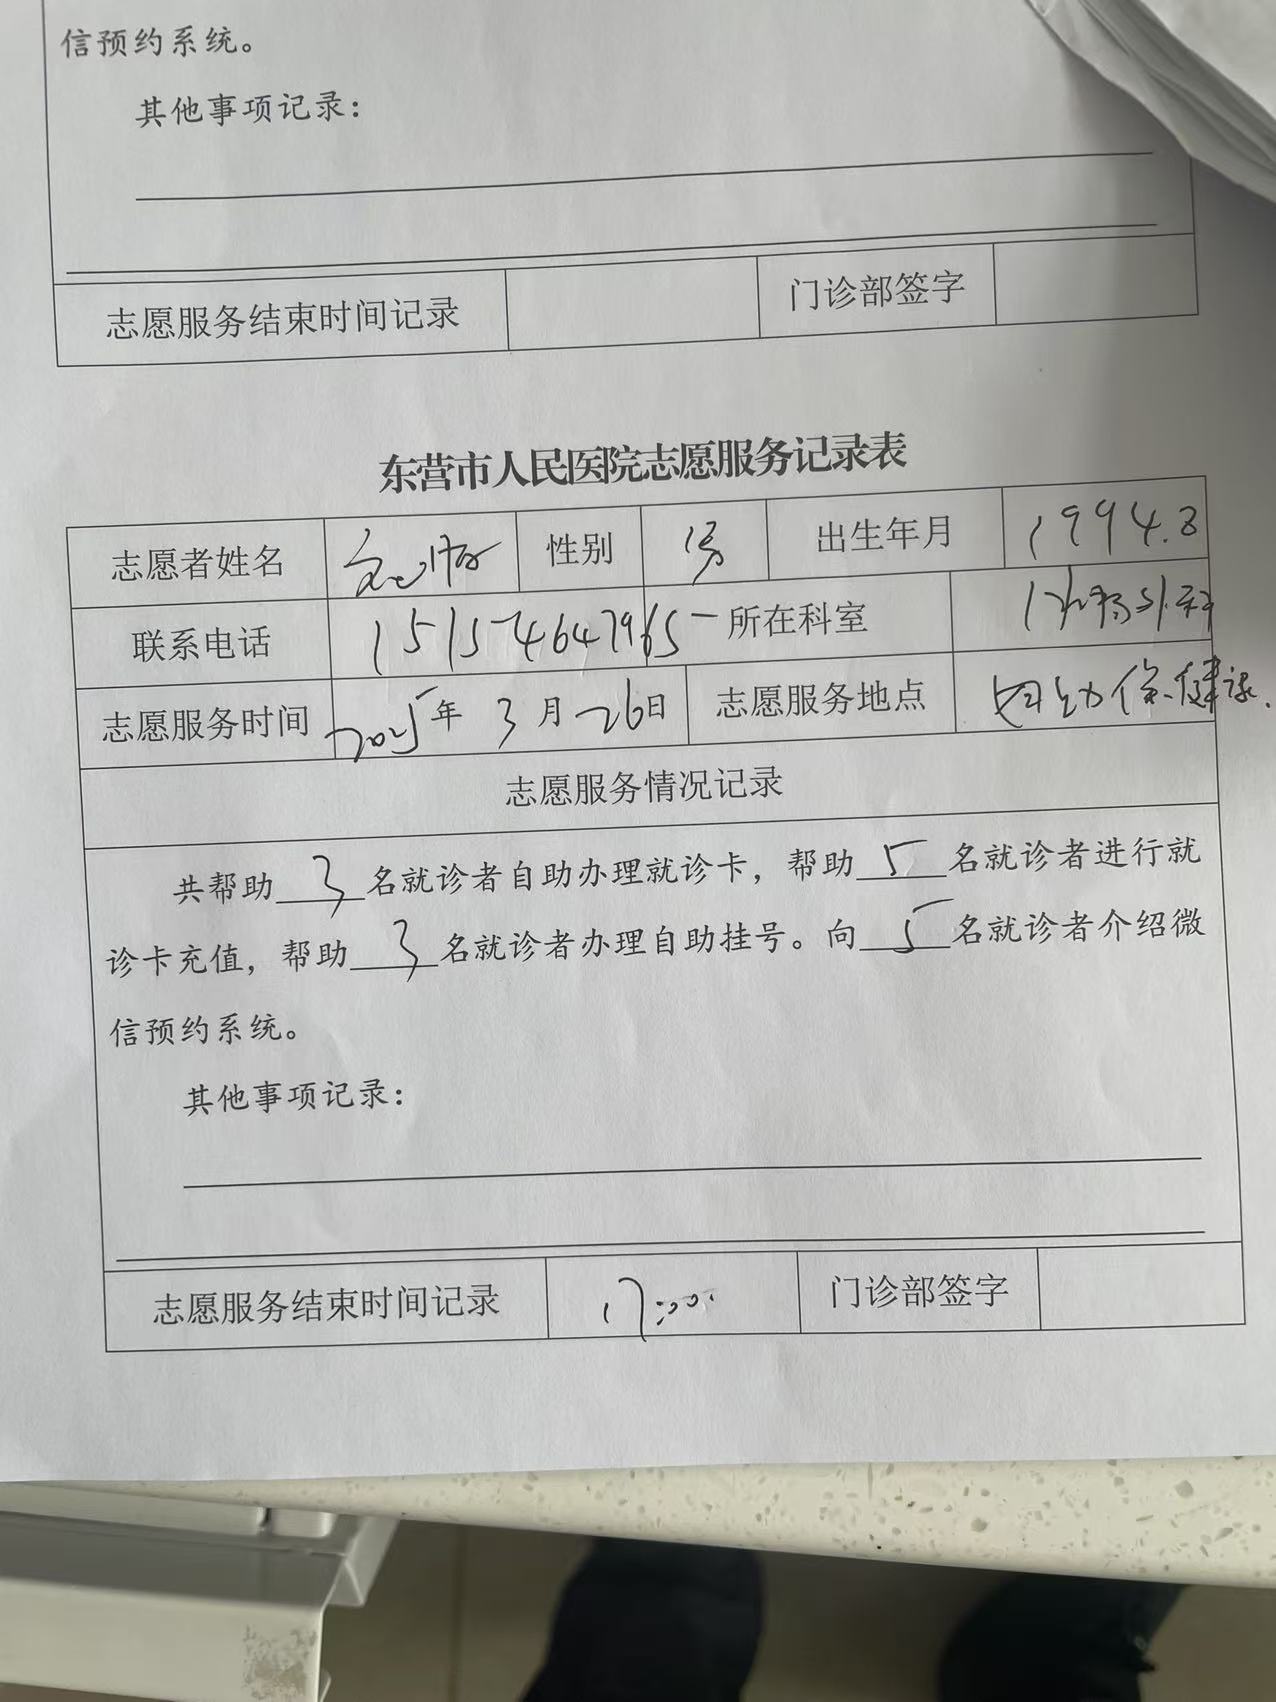 信预约系统。
其他事项记录：
志愿服务结束时间记录 门诊部签字
东营市人民医院志愿服务记录表
志愿者姓名 性别 男 出生年月 1994.8
联系电话 15154647965 所在科室 外科
志愿服务时间 2025年 3月 26日 志愿服务地点 妇幼保健院.
志愿服务情况记录
共帮助 3 名就诊者自助办理就诊卡，帮助 5 名就诊者进行就
诊卡充值，帮助 3 名就诊者办理自助挂号。向 5 名就诊者介绍微
信预约系统。
其他事项记录：
志愿服务结束时间记录 17:00. 门诊部签字